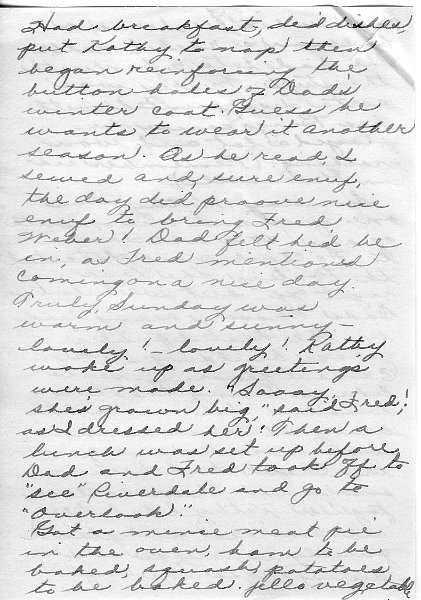 Had breakfast, did dishes,
put Kathy to nap then
began reinforcing the
button holes of Dad's
winter coat. Guess he
wants to wear it another
season. As he read, I
sewed and, sure enuf,
the day did proove nice
enuf to bring Fred
Weber! Dad felt he'd be
in, a Fred mentioned
coming on a nice day.
Truly, Sunday was
warm and sunny -
lovely! - lovely! Kathy
woke up as greetings
were made. "Saaay,
she's grown big," said Fred!,
as I dressed her! Then a
lunch was set up before
Dad and Fred took off to
"see" Riverdale and go to
"Overlook."
Got a mince meat pie
in the oven, ham to be
baked, squash, potatoes
to be baked. jello vegetable